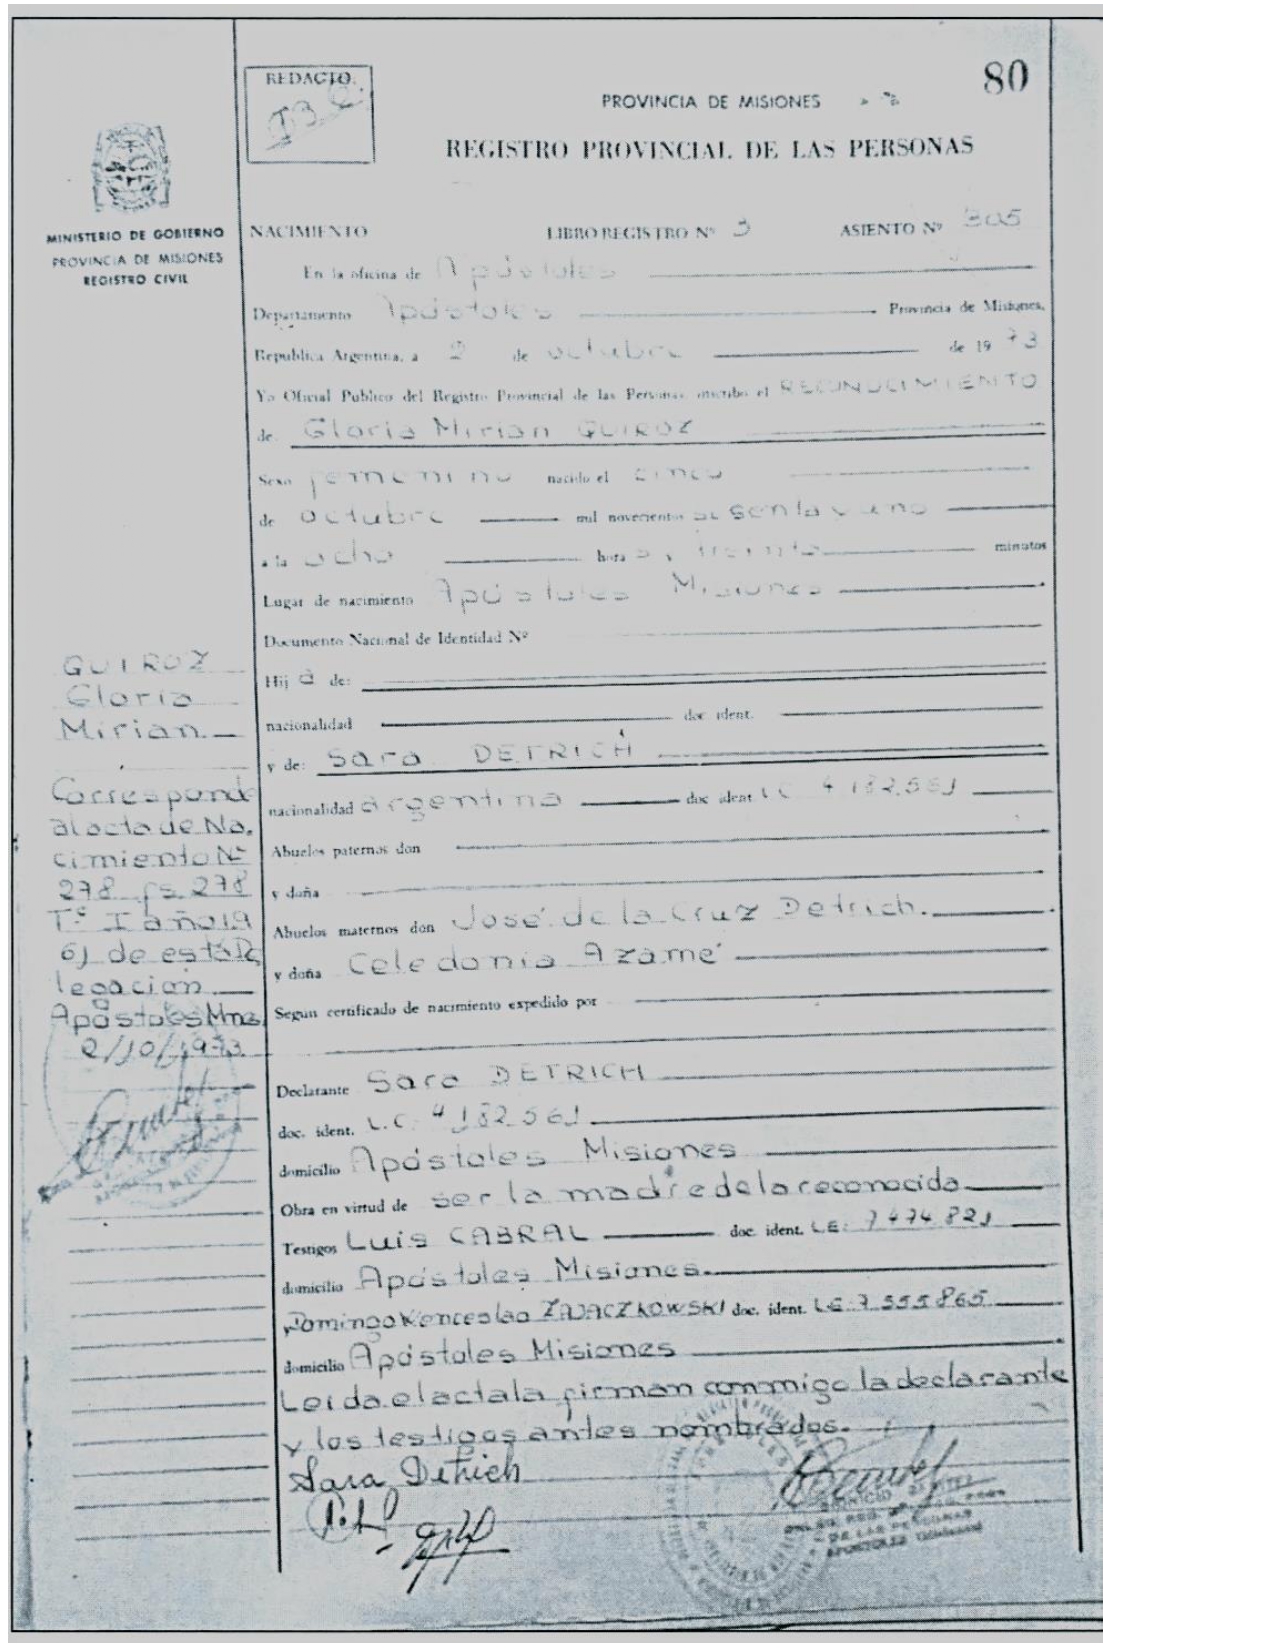 REDACTO.
80
PROVINCIA DE MISIONES
REGISTRO PROVINCIAL DE LAS PERSONAS
MINISTERIO DE GOBIERNO
PROVINCIA DE MISIONES
REGISTRO CIVIL
NACIMIENTO LIBRO REGISTRO Nº 3 ASIENTO Nº 305
En la oficina de Apóstoles
Departamento Apóstoles Provincia de Misiones,
Republica Argentina, a 2 de octubre de 1973
Yo Oficial Publico del Registro Provincial de las Personas inscribo el RECONOCIMIENTO
de: Gloria Mirian QUIROZ
Sexo femenino nacido el cinco
de octubre mil novecientos sesenta y uno
a la ocho hora s y treinta minutos
Lugar de nacimiento Apóstoles Misiones
Documento Nacional de Identidad Nº
Hij a de:
nacionalidad doc. ident.
y de: Sara DETRICH
nacionalidad argentina doc. ident. L C 4.182.561
Abuelos paternos don
y doña
Abuelos maternos don José de la Cruz Detrich.
y doña Celedonia Azamé
Segun certificado de nacimiento expedido por
Declarante Sara DETRICH
doc. ident. L.C. 4.182.561
domicilio Apóstoles Misiones
Obra en virtud de ser la madre de la reconocida
Testigos Luis CABRAL doc. ident. L.E: 7.474.821
domicilio Apóstoles Misiones.
Domingo Wenceslao ZAJACZKOWSKI doc. ident. L.E. 7.555.865
domicilio Apóstoles Misiones
Leida el acta la firman conmigo la declarante
y los testigos antes nombrados.
Sara Detrich
QUIROZ
Gloria
Mirian.
Corresponde
al acta de Na.
cimiento Nº
278 fs. 278
Tº I año 19
61 de esta De
legación
Apóstoles Mnes.
2/10/1973